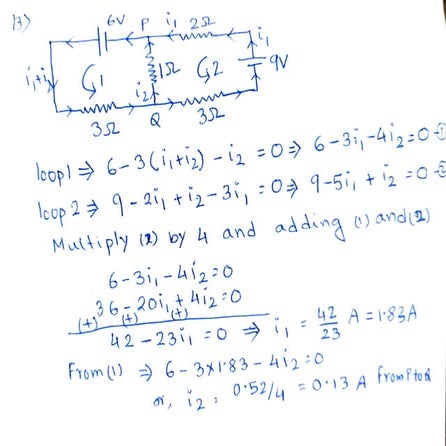 13)
6V P i₁ 2Ω
i₁
i₁+i₂ 1 1Ω 2 9V
i₂
3Ω Q 3Ω
loop1 ⇒ 6-3(i₁+i₂) - i₂ = 0 ⇒ 6-3i₁-4i₂=0-①
loop2 ⇒ 9-2i₁+i₂-3i₁ = 0 ⇒ 9-5i₁+i₂ = 0-②
Multiply (2) by 4 and adding (1) and (2)
6-3i₁-4i₂=0
36-20i₁+4i₂=0
(+) (+) (+)
42-23i₁ = 0 ⇒ i₁ = 42/23 A = 1.83A
From (1) ⇒ 6-3×1.83-4i₂=0
or, i₂ = 0.52/4 = 0.13 A from P to Q